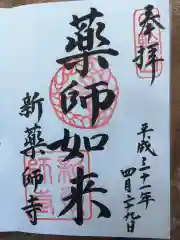 奉拝
薬師如来
新薬師寺
平成三十一年
四月二十九日